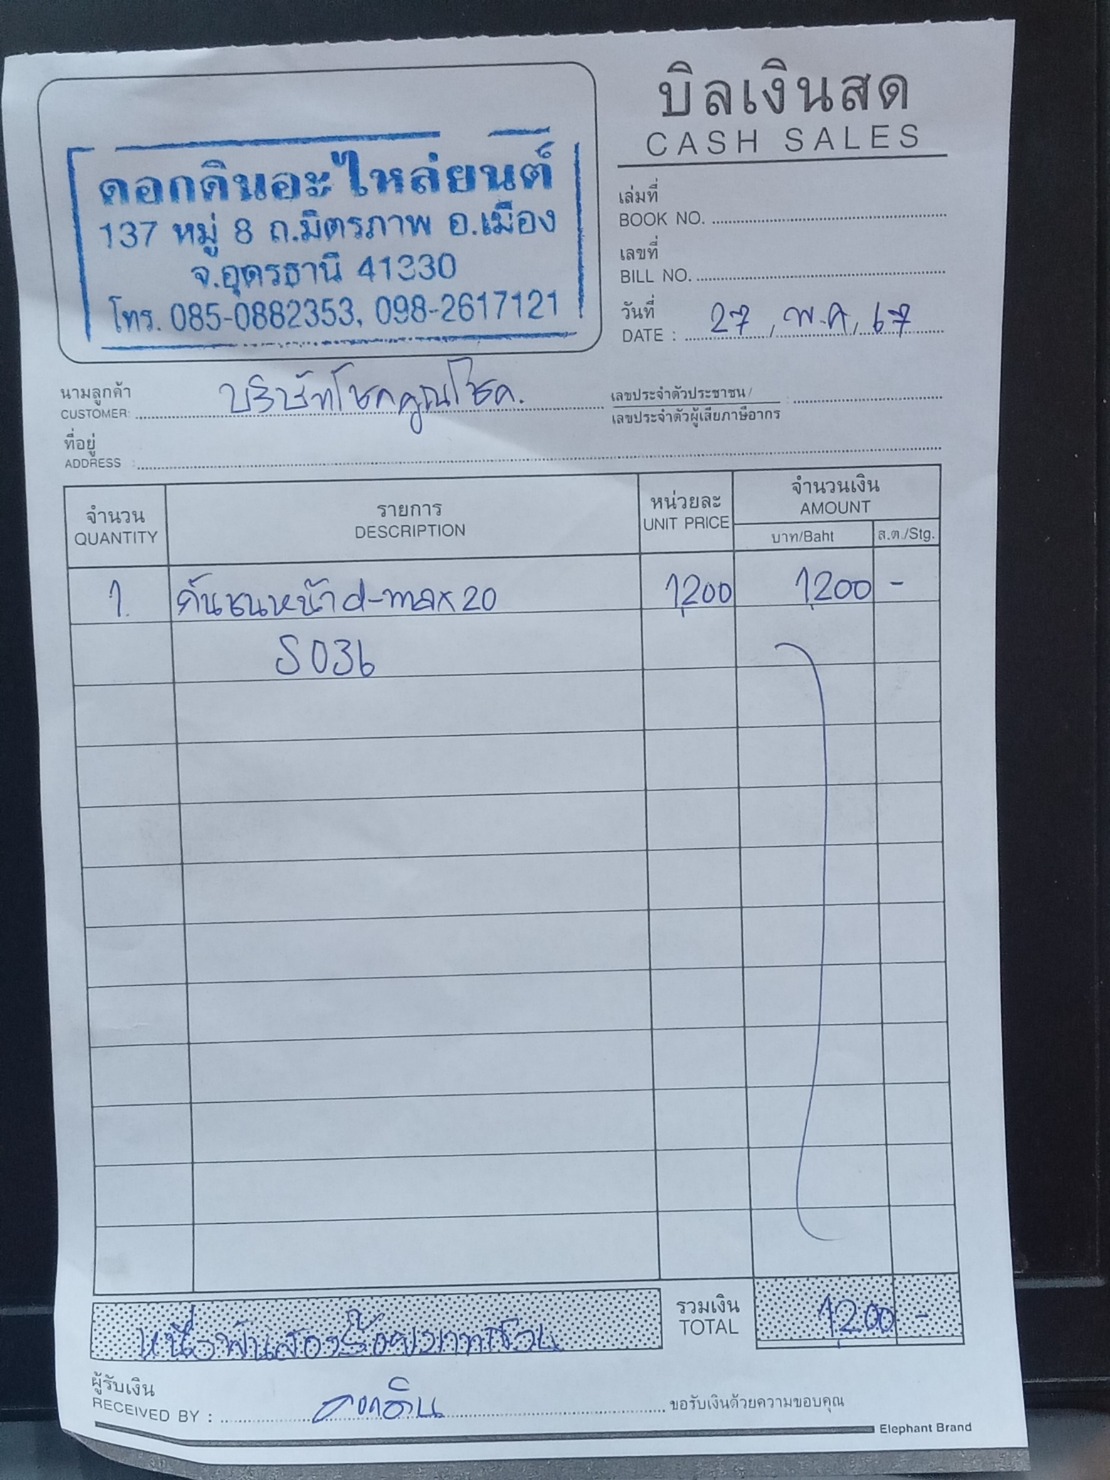 บิลเงินสด
CASH SALES
ดอกดินอะไหล่ยนต์
137 หมู่ 8 ถ.มิตรภาพ อ.เมือง
จ.อุดรธานี 41330
โทร. 085-0882353, 098-2617121
เล่มที่
BOOK NO.
เลขที่
BILL NO.
วันที่
DATE : 27, พ.ค, 67
นามลูกค้า
CUSTOMER: บริษัทโชคคูณโชค.
เลขประจำตัวประชาชน/ :
เลขประจำตัวผู้เสียภาษีอากร
ที่อยู่
ADDRESS :
จำนวน รายการ หน่วยละ จำนวนเงิน
QUANTITY DESCRIPTION UNIT PRICE AMOUNT
บาท/Baht ส.ต./Stg.
1. กันชนหน้า d-max 20 1,200 1,200 -
S036
รวมเงิน
TOTAL 1,200 -
หนึ่งพันสองร้อยบาทถ้วน
ผู้รับเงิน
RECEIVED BY : ดอกดิน ขอรับเงินด้วยความขอบคุณ
Elephant Brand